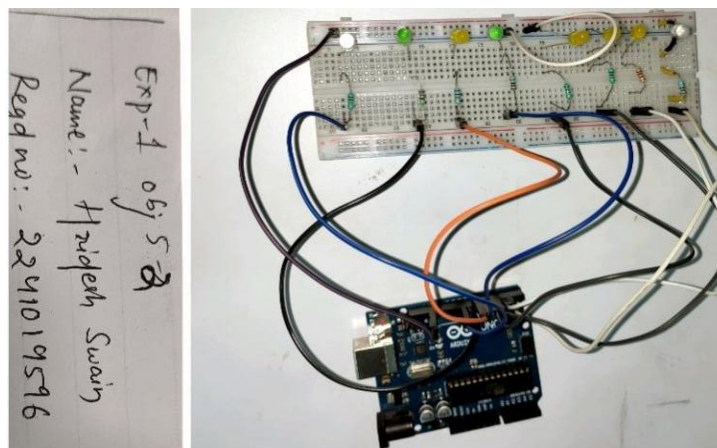 Exp-1 obj 5-2
Name:- Hridesh Swain
Regd no:- 2241019596
UNO
ARDUINO